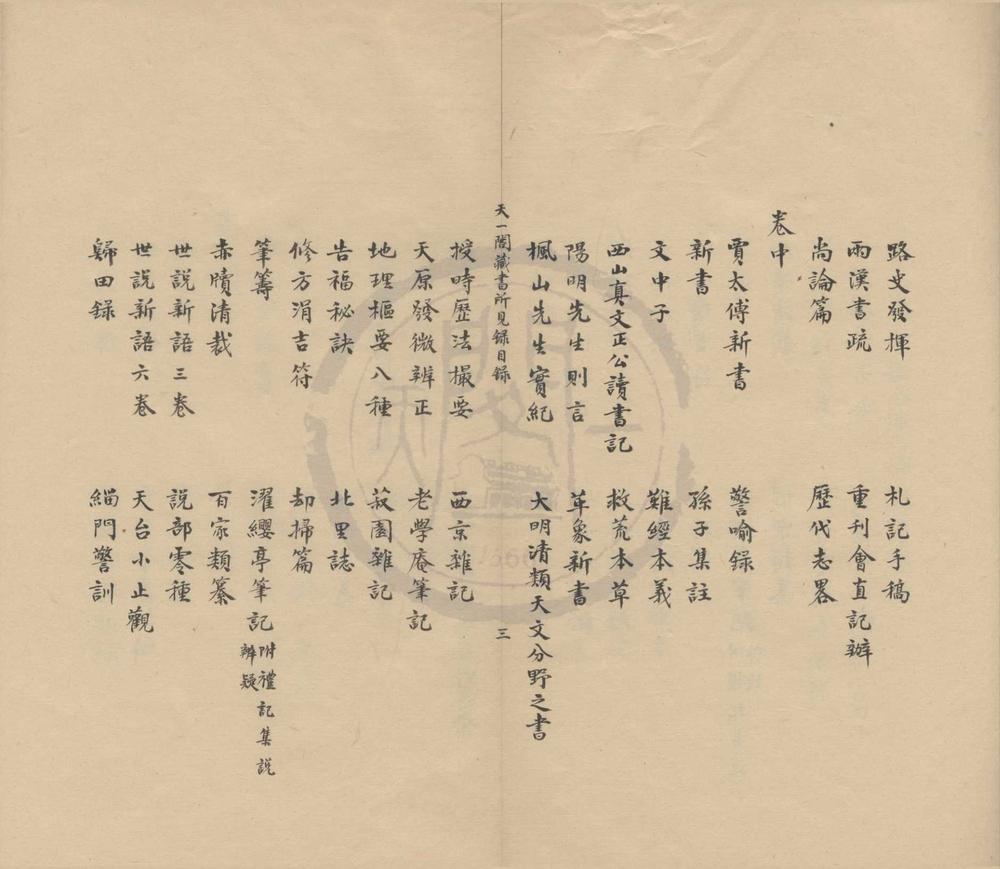 路史發揮　札記手稿
兩漢書疏　重刊會直記辦
尚論篇　歷代志畧
卷中
賈太傅新書　警喻錄
新書　孫子集註
文中子　難經本義
西山真文正公讀書記　救荒本草
陽明先生則言　革象新書
楓山先生實紀　大明清類天文分野之書
天一閣藏書所見錄目錄　三
授時歷法撮要　西京雜記
天原發微辨正　老學庵筆記
地理樞要八種　菽園雜記
告福秘訣　北里誌
修方涓吉符　却掃篇
筆籌　濯纓亭筆記附禮記集說辨疑
赤牘清裁　百家類纂
世說新語三卷　說部零種
世說新語六卷　天台小止觀
歸田錄　緇門警訓
天一閣
1566